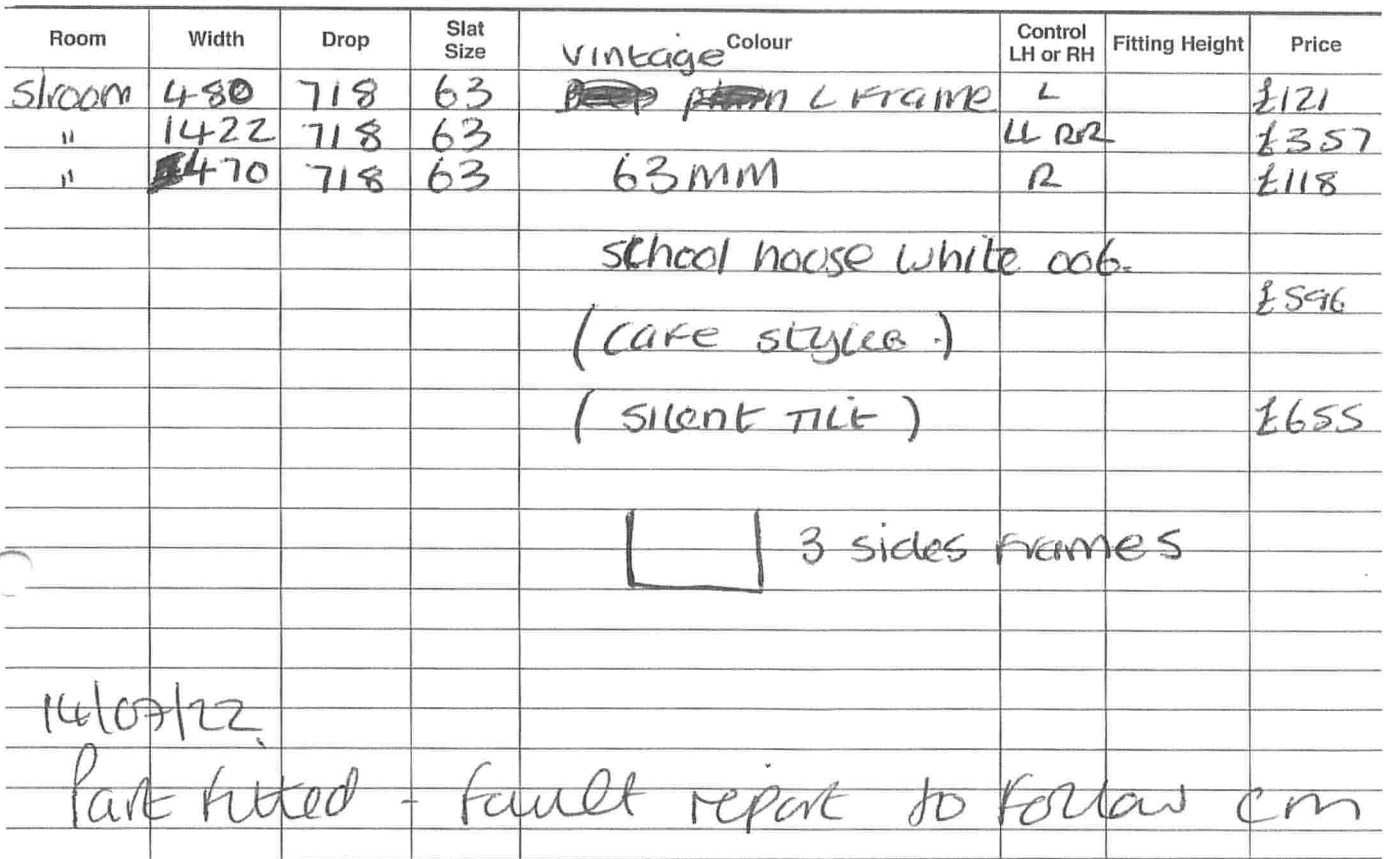 Room Width Drop Slat Size Colour Control LH or RH Fitting Height Price
Vintage
S/room 480 718 63 L Frame L £121
" 1422 718 63 LL RR £357
" 470 718 63 63mm R £118
School house white 006.
£596
(Cafe styles.)
(Silent Tilt) £655
3 sides frames
14/07/22
Part fitted - fault report to follow cm